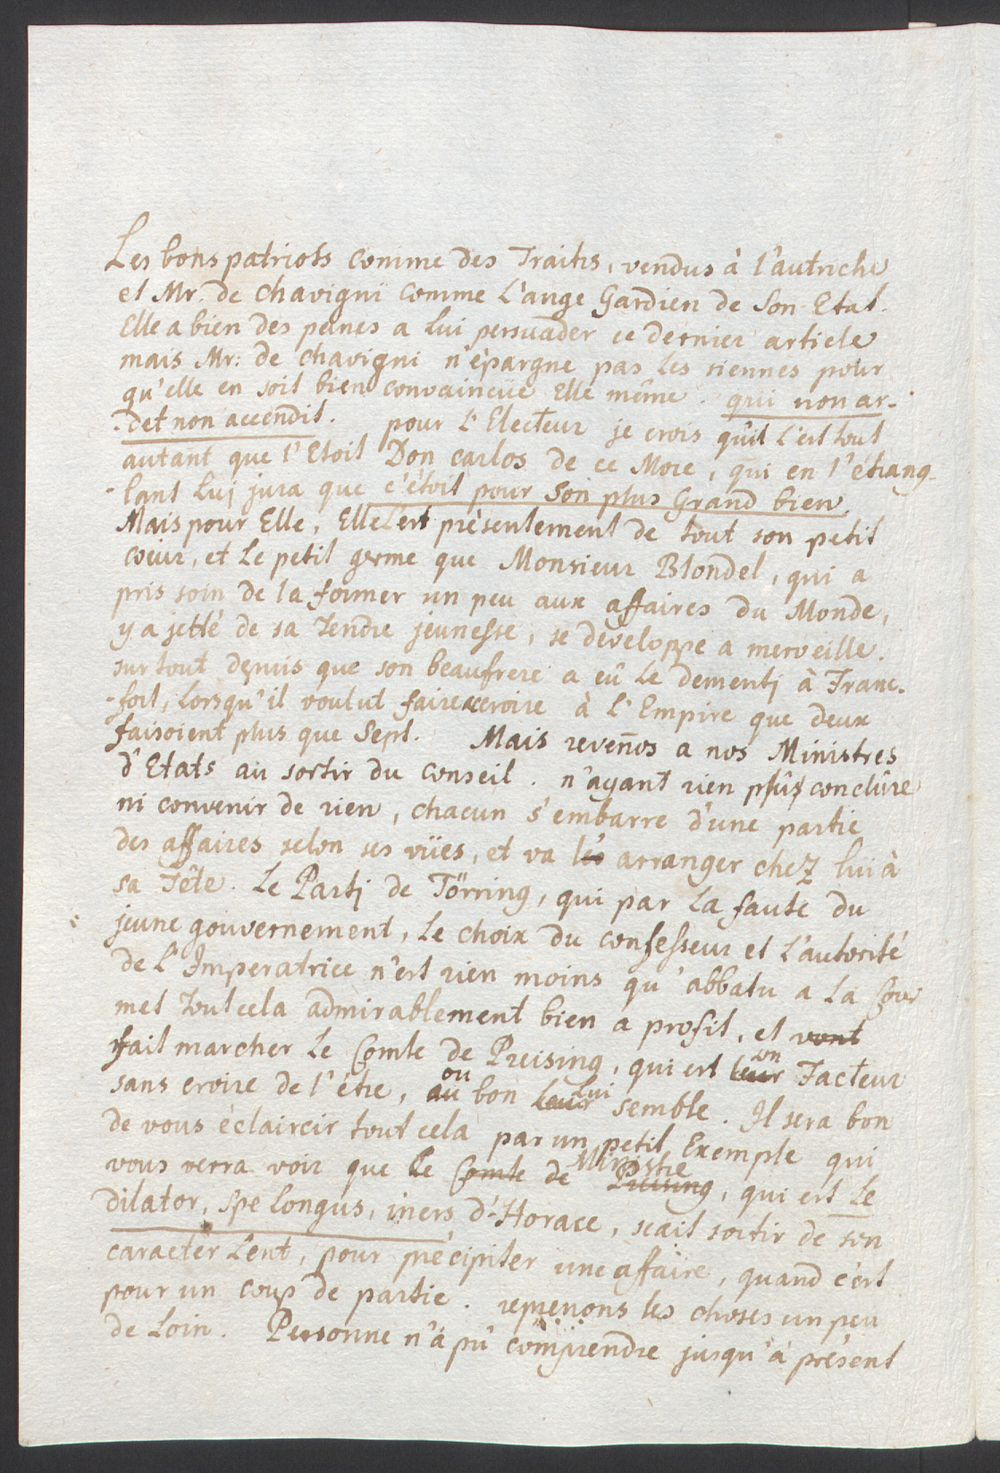 Les bons patriots comme des Traitrs, vendus à l'autriche
et Mr. de Chavigni comme L'ange Gardien de Son Etat.
Elle a bien des peines a lui persuader ce dernier article
mais Mr: de Chavigni n'épargne pas les siennes pour
qu'elle en soit bien convaincüe Elle même. qui non ar-
-det non accendit. pour L'Electeur je crois qu'il l'est tout
autant que l'Etoit Don carlos de ce More, qui en l'étrang-
-lant Luj jura que c'étoit pour Son plus Grand bien.
Mais pour Elle, Elle L'est présentement de tout son petit
coeur, et Le petit germe que Monsieur Blondel, qui a
pris soin de la former un peu aux affaires du Monde,
y a jetté de sa tendre jeunesse, se developpe a merveille.
sur tout depuis que son beaufrere a eû Le dementj à Franc-
-fort, Lorsqu'il voulut faire croire à L'Empire que deux
faisoient plus que Sept. Mais reveños a nos Ministres
d'Etats au sortir du conseil. n'ayant rien pû conclûre
ni convenir de rien, chacun s'embarre d'une partie
des affaires selon ses vües, et va les arranger chez lui à
sa Tête. Le Partj de Törring, qui par La faute du
jeune gouvernement, Le choix du confesseur et L'autorité
de L'Imperatrice n'est rien moins qu'abbatu a La Cour
met tout cela admirablement bien a profit, et vont
fait marcher Le Comte de Preising, qui est leur son Facteur
sans croire de l'être, au ou bon leur lui semble. Il sera bon
de vous éclaircir tout cela par un petit Exemple qui
vous verra voir que Le Comte de Preising Ministre, qui est Le
Dilator, Spe Longus, iners d'Horace, scait sortir de son
caracter Lent, pour précipiter une affaire, quand c'est
pour un coup de partie. reprenons les choses un peu
de Loin. Personne n'a pû comprendre jusqu'à présent